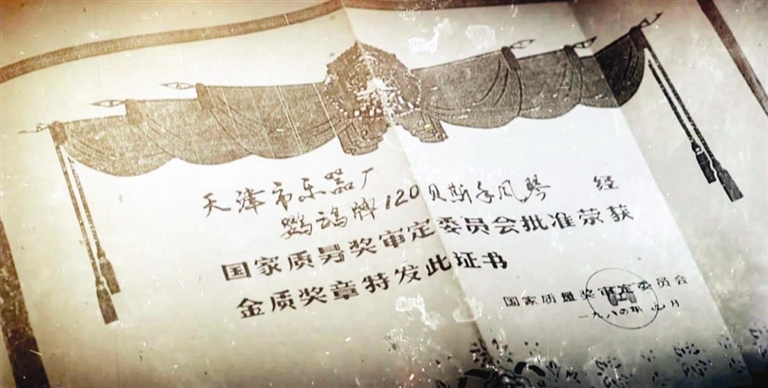 天津市乐器厂
鹦鹉牌120贝斯手风琴 经
国家质量奖审定委员会批准荣获
金质奖章特发此证书
国家质量奖审定委员会
一九八〇年 月